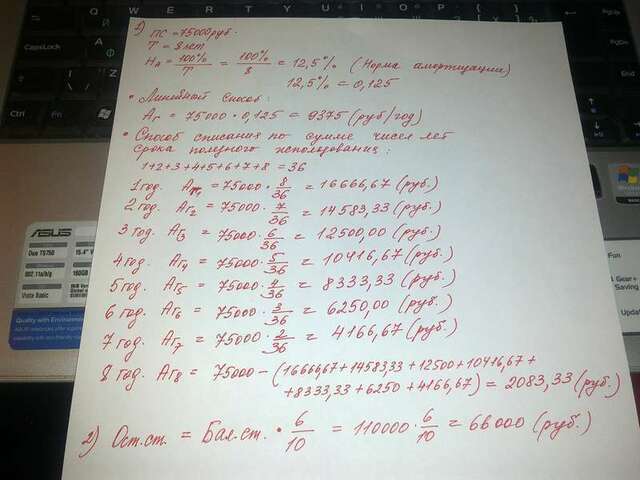 Q W E R T Y U I O P
CapsLock
A
Shift
Ctrl
Fn
1) ПС = 75000 руб.
T = 8 лет
Hа = 100%/T = 100%/8 = 12,5% (Норма амортизации)
12,5% = 0,125
• Линейный способ:
Аг = 75000 · 0,125 = 9375 (руб/год)
• Способ списания по сумме чисел лет
срока полезного использования:
1+2+3+4+5+6+7+8 = 36
1 год. Аг1 = 75000 · 8/36 = 16666,67 (руб.)
2 год. Аг2 = 75000 · 7/36 = 14583,33 (руб.)
3 год. Аг3 = 75000 · 6/36 = 12500,00 (руб.)
4 год. Аг4 = 75000 · 5/36 = 10416,67 (руб.)
5 год. Аг5 = 75000 · 4/36 = 8333,33 (руб.)
6 год. Аг6 = 75000 · 3/36 = 6250,00 (руб.)
7 год. Аг7 = 75000 · 2/36 = 4166,67 (руб.)
8 год. Аг8 = 75000 – (16666,67 + 14583,33 + 12500 + 10416,67 +
+ 8333,33 + 6250 + 4166,67) = 2083,33 (руб.)
2) Ост.ст. = Бал.ст. · 6/10 = 110000 · 6/10 = 66000 (руб.)
ASUS
Duo T5750
15.4"
802.11a/b/g
160GB
Vista Basic
Quality with Environmental
Fun
Gear+
Saving
Update